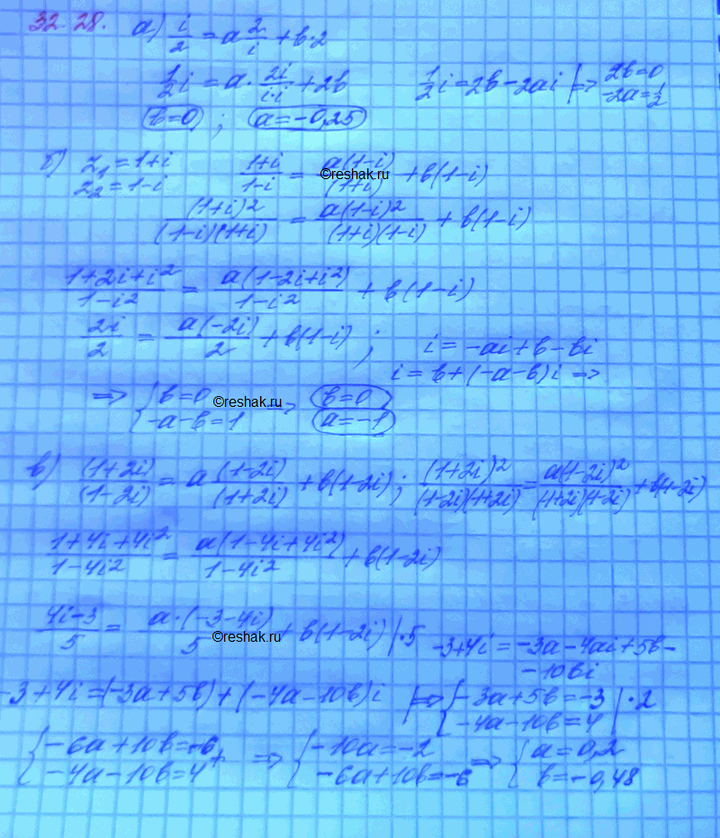 32.28. а) i/2 = a 2/i + b·2
1/2 i = a· 2i/(i·i) + 2b    1/2 i = 2b - 2ai |=> 2b=0
-2a = 1/2
b=0 ; a=-0,25
б) z₁ = 1+i    (1+i)/(1-i) = a(1-i)/(1+i) + b(1-i)
z₂ = 1-i
©reshak.ru
(1+i)²/((1-i)(1+i)) = a(1-i)²/((1+i)(1-i)) + b(1-i)
(1+2i+i²)/(1-i²) = a(1-2i+i²)/(1-i²) + b(1-i)
2i/2 = a(-2i)/2 + b(1-i) ;    i = -ai+b-bi
i = b+(-a-b)i =>
=> { b=0    => b=0
-a-b=1    a=-1
©reshak.ru
в) (1+2i)/(1-2i) = a (1-2i)/(1+2i) + b(1-2i) ; (1+2i)²/((1-2i)(1+2i)) = a(1-2i)²/((1+2i)(1-2i)) + b(1-2i)
(1+4i+4i²)/(1-4i²) = a(1-4i+4i²)/(1-4i²) + b(1-2i)
(4i-3)/5 = a·(-3-4i)/5 + b(1-2i) |·5    -3+4i = -3a-4ai+5b-
-10bi
©reshak.ru
-3+4i=(-3a+5b)+(-4a-10b)i |=> { -3a+5b=-3 |·2
-4a-10b=4
{ -6a+10b=-6 +    => { -10a=-2    => { a=0,2
-4a-10b=4    -6a+10b=-6    b=-0,48